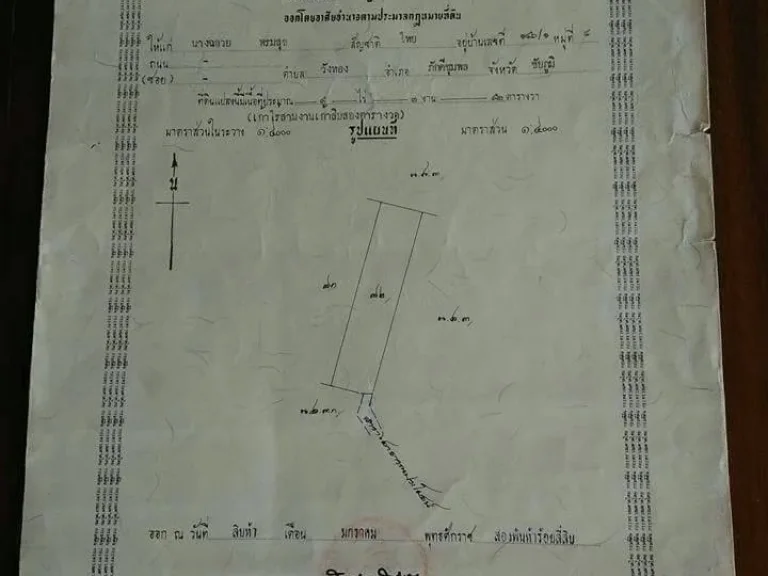 ออกโดยอาศัยอำนาจตามประมวลกฎหมายที่ดิน
ให้แก่ นางฉลวย พรมสุข สัญชาติ ไทย อยู่บ้านเลขที่ ๑๘๖/๑ หมู่ที่ ๘
ถนน -
(ซอย) - ตำบล วังทอง อำเภอ ภักดีชุมพล จังหวัด ชัยภูมิ
ที่ดินแปลงนี้มีเนื้อที่ประมาณ ๙ ไร่ ๓ งาน ๙๒ ตารางวา
(เก้าไร่สามงานเก้าสิบสองตารางวา)
มาตราส่วนในระวาง ๑:๔๐๐๐ รูปแผนที่ มาตราส่วน ๑:๔๐๐๐
น
น.ส.๓
๗๒
น.ส.๓
ทางสาธารณประโยชน์
ออก ณ วันที่ สิบห้า เดือน มกราคม พุทธศักราช สองพันห้าร้อยสี่สิบ